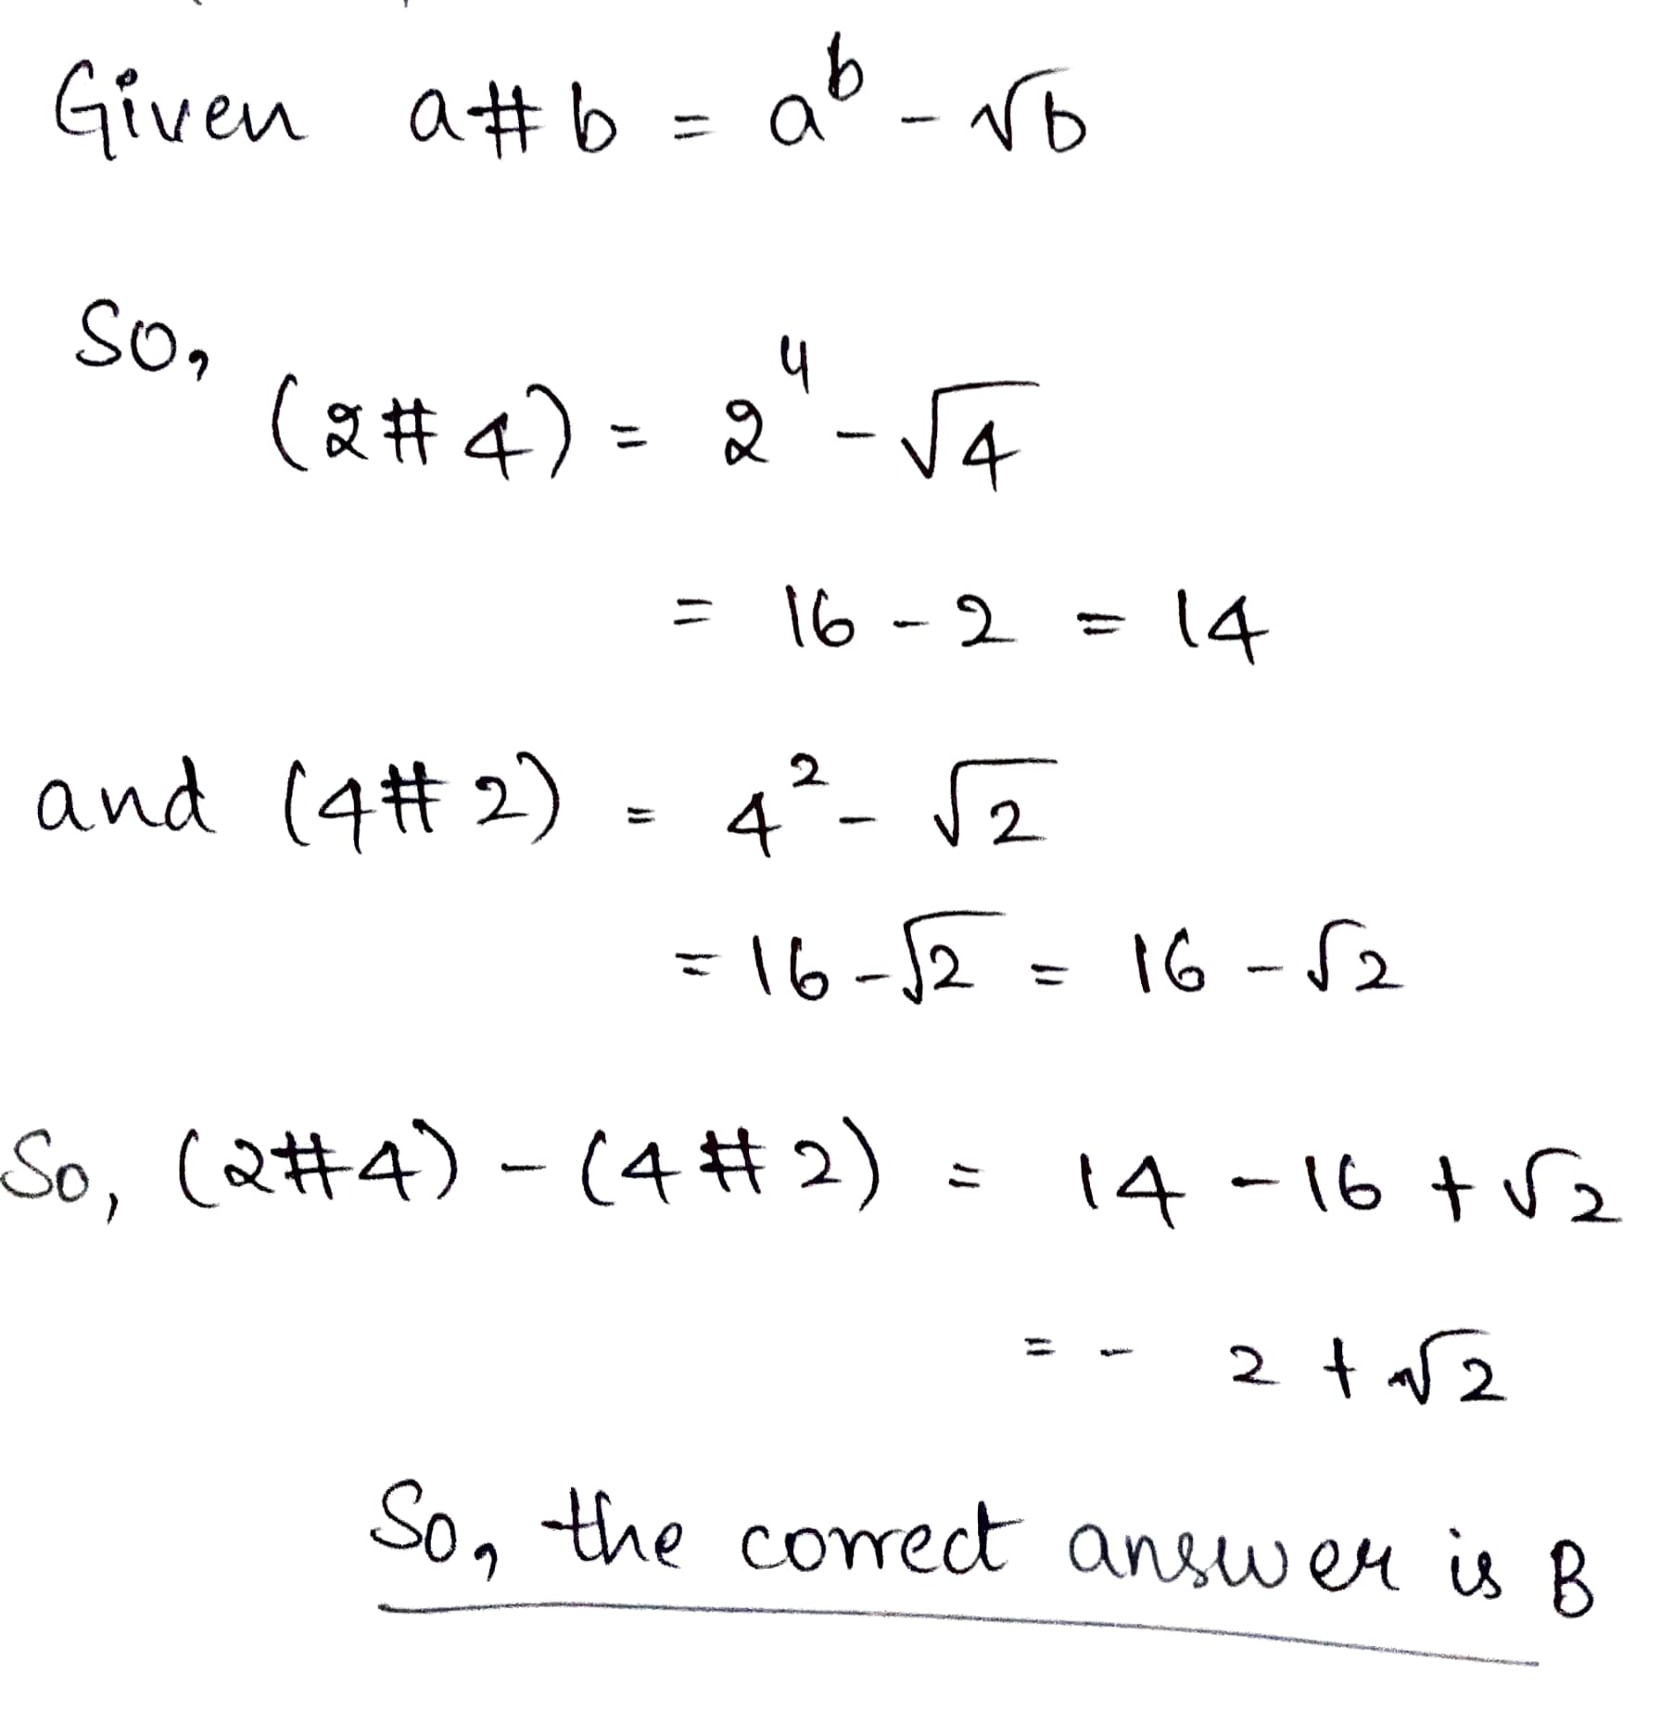 Given a # b = a^b - √b
So,
(2 # 4) = 2^4 - √4
= 16 - 2 = 14
and (4 # 2) = 4^2 - √2
= 16 - √2 = 16 - √2
So, (2 # 4) - (4 # 2) = 14 - 16 + √2
= - 2 + √2
So, the correct answer is B